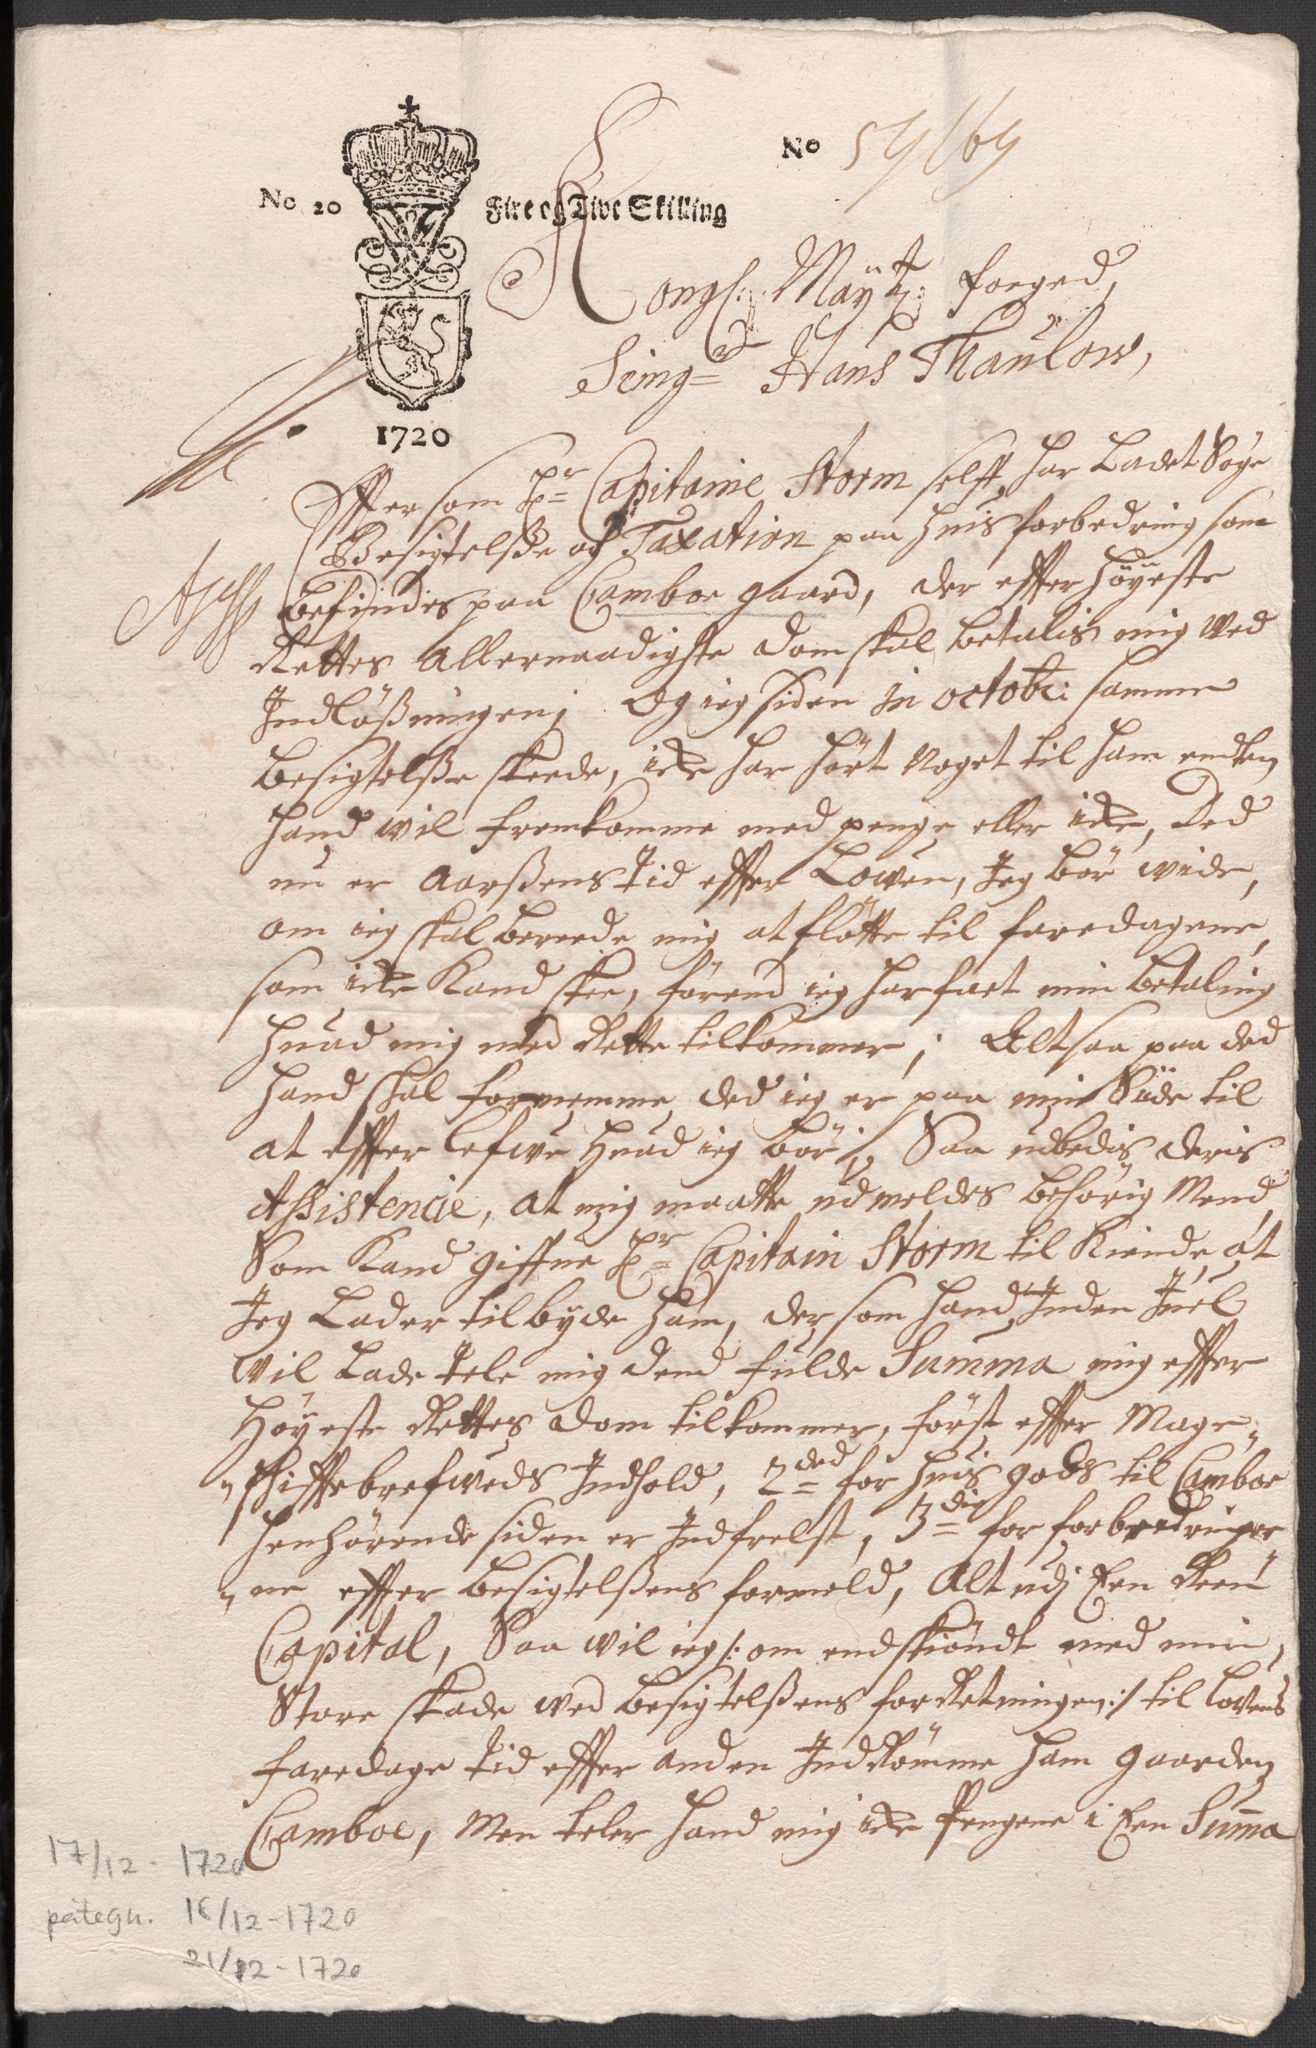 No 20 Fire og Tive Skilling
No
1720
Kongl: Mäytz: foeged,
Seingr Hans Thaulow,
Effter som Hr Capitaine Storm self, har Ladet Söge
Besigtelsse og Taxation paa huis forbedring som
befindes paa Camboe gaard, der effter höyeste
Rettes Allernaadigste dom skal betalis mig Wed
Indlößningen; Og ieg siden in octobr: samme
besigtelsse skeede, icke har hört Noget til ham endten
hand wil fremkomme med penge eller icke, Ded
nu er Aarßens tid effter Lowen, Jeg bör wide,
om ieg skal bereede mig at flötte til faredagene,
som icke Kand skee, förend ieg har faaet min betaling
huad mig med Rette tilkommer; Altsaa paa ded
hand skal fornemme ded ieg er paa min Side til
at effter lefwe huad ieg bör; Saa udbedis deris
Assistencie, at mig maatte udmeldes behörig Mend,
Som Kand giffue Hr Capitain Storm til Kiende, at
Jeg Lader tilbyde ham, der som hand Inden Juel
wil Lade tele mig dend fulde Summa mig effter
Höyeste Rettes dom tilkommer, först effter Mage-
skifftebrefweds Indhold, 2ded for huis gods til Camboe
henhörende siden er Indfrelst, 3die for forbedringer
ne effter besigtelßens formeld, Alt udj Een Reen
Capital, Saa wil ieg /: om endskiöndt med min
Store skade wed besigtelßens forRetningen :/ til lovens
faredage tid effter anden Indrömme ham gaarden
Camboe, Men teler hand mig icke Pengene i Een Suma
17/12 - 1720
påtegn. 18/12-1720
21/12-1720